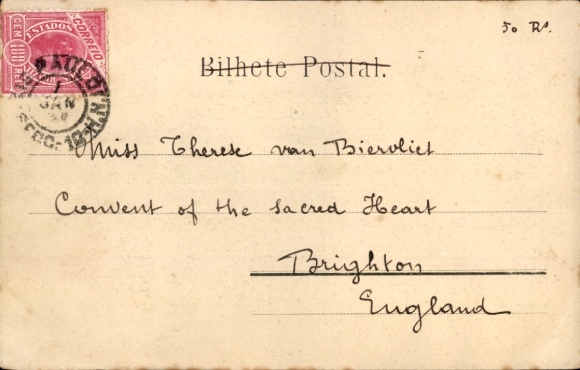 50 Rs.
CORREIO
ESTADOS
CEM
100
Bilhete Postal.
PAULO
1
JAN
Miss Therese van Biervliet
Convent of the Sacred Heart
Brighton
England